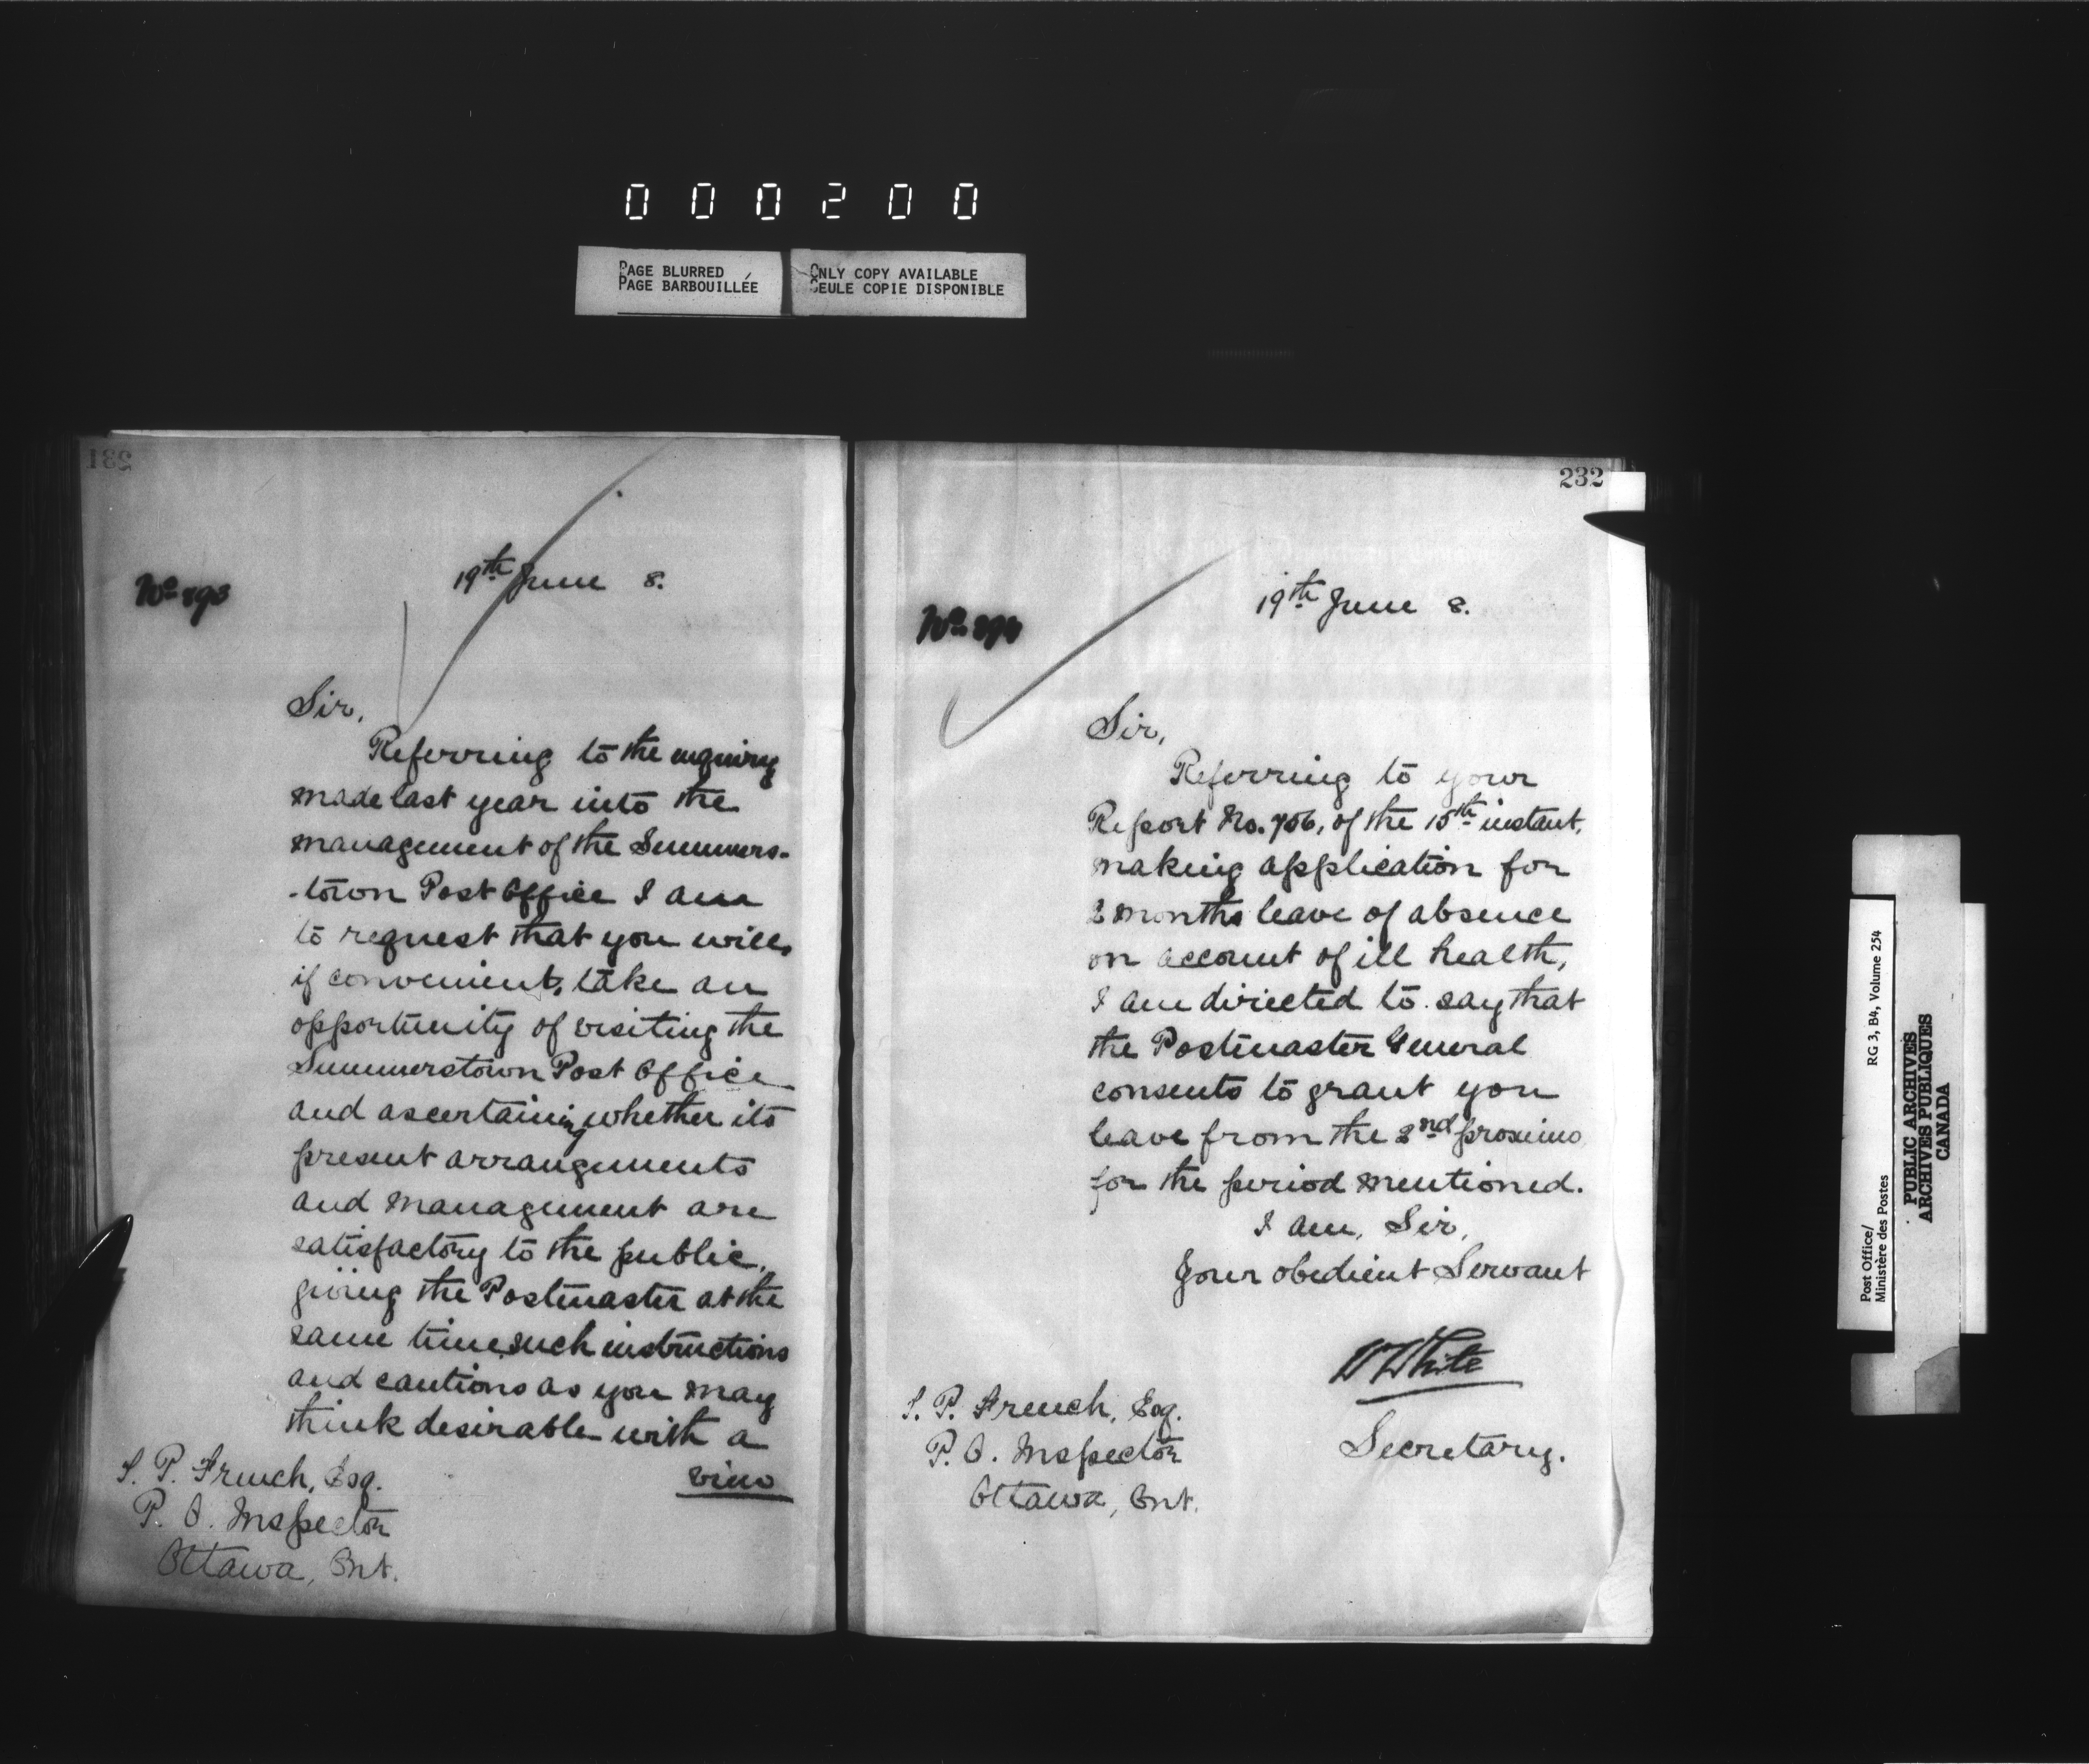 000200
PAGE BLURRED
PAGE BARBOUILLÉE
ONLY COPY AVAILABLE
SEULE COPIE DISPONIBLE
231
No. 893
19th June 8.
Sir,
Referring to the enquiry
made last year into the
management of the Summers-
-town Post Office I am
to request that you will,
if convenient, take an
opportunity of visiting the
Summerstown Post Office
and ascertaining whether its
present arrangements
and management are
satisfactory to the public,
giving the Postmaster at the
same time such instructions
and cautions as you may
think desirable with a
view
P. French, Esq.
P. O. Inspector
Ottawa, Ont.
232
No. 894
19th June 8.
Sir,
Referring to your
Report No. 756, of the 15th instant,
making application for
2 months leave of absence
on account of ill health,
I am directed to say that
the Postmaster General
consents to grant you
leave from the 2nd proximo
for the period mentioned.
I am, Sir,
Your obedient Servant
W White
Secretary.
P. French, Esq.
P. O. Inspector
Ottawa, Ont.
Post Office/
Ministère des Postes
RG 3, B4, Volume 254
PUBLIC ARCHIVES
ARCHIVES PUBLIQUES
CANADA